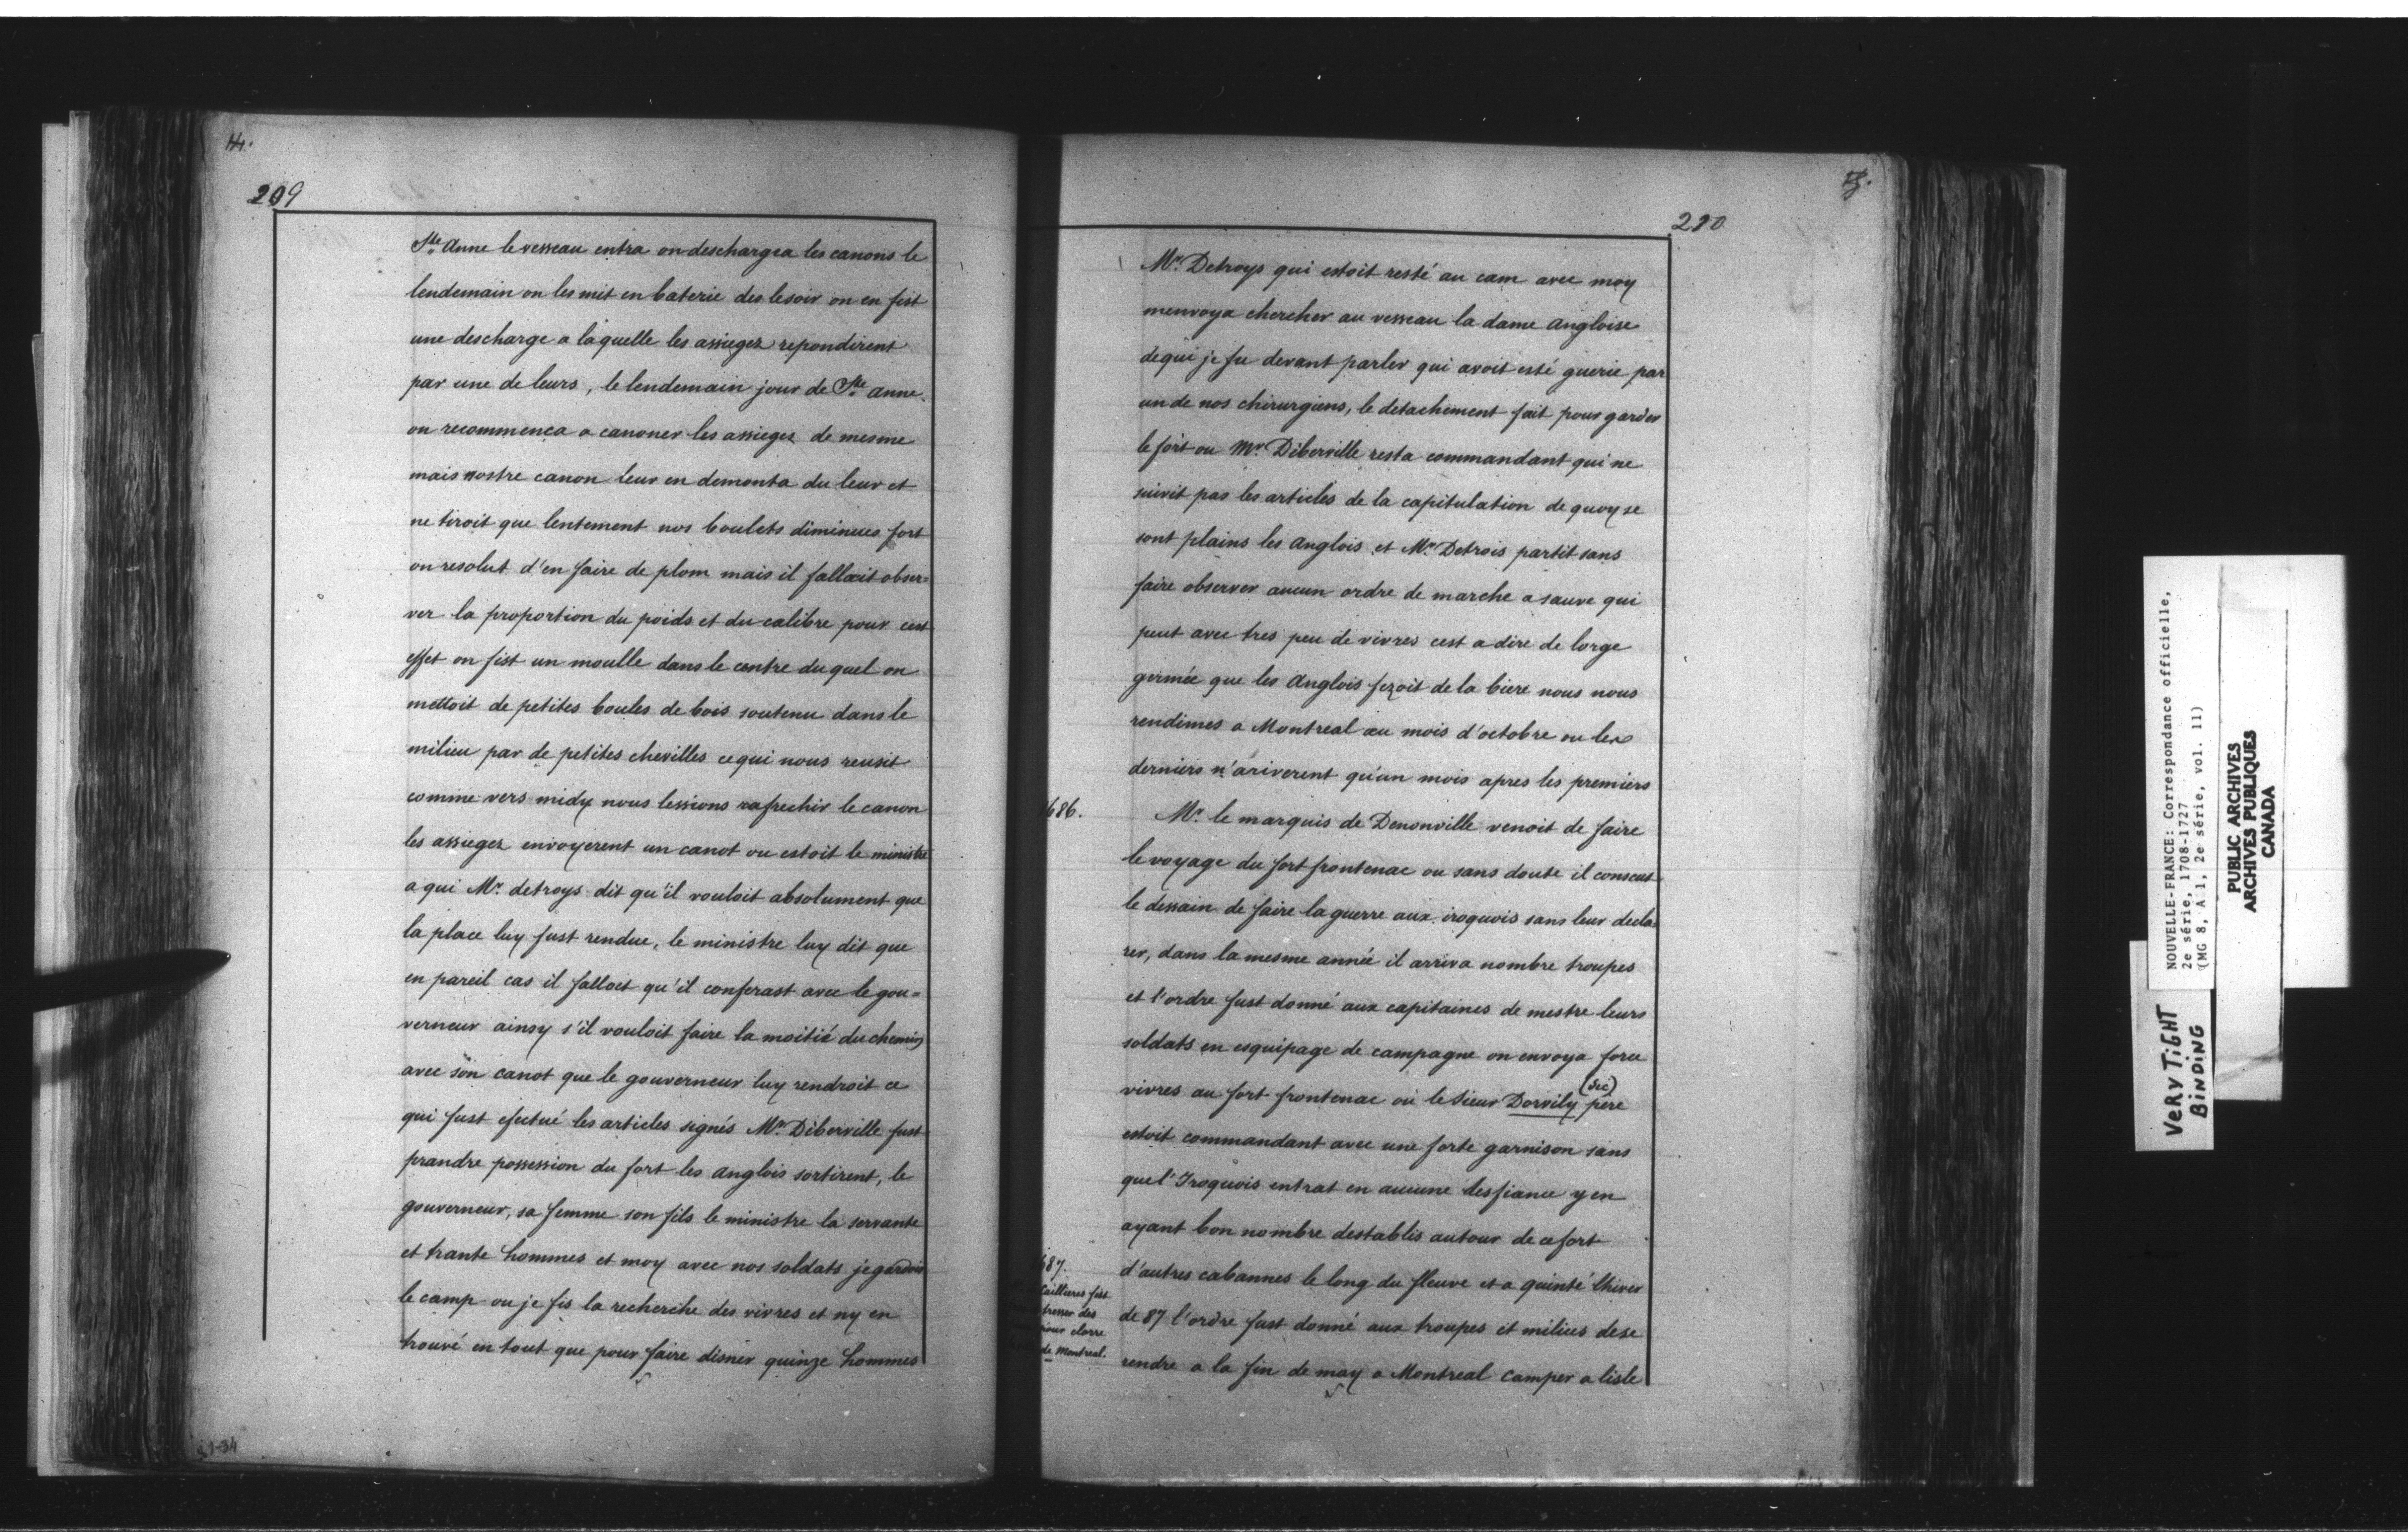 209
Ste Anne le vesseau entra on deschargea les canons le
lendemain on les mit en baterie des lesoir on en fist
une descharge a laquelle les assiegez repondirent
par une de leurs, le lendemain jour de Ste anne
on recommenca a canoner les assiegez de mesme
mais nostre canon leur en demonta du leur et
ne tiroit que lentement nos boulets diminues fort
on resolut d'en faire de plom mais il falloit obser=
ver la proportion du poids et du calibre pour cest
effet on fist un moulle dans le centre du quel on
mettoit de petites boules de bois soutenu dans le
milieu par de petites chevilles cequi nous reusit
comme vers midy nous lessions rafrechir le canon
les assiegez envoyerent un canot ou estoit le ministre
a qui Mr. detroys dit qu'il vouloit absolument que
la place luy fust rendue, le ministre luy dit que
en pareil cas il falloit qu'il conferast avec le gou=
verneur ainsy s'il vouloit faire la moitié du chemin
avec son canot que le gouverneur luy rendroit ce
qui fust efectué les articles signés Mr. Diberville fust
prandre possession du fort les anglois sortirent, le
gouverneur, sa femme son fils le ministre la servante
et trante hommes et moy avec nos soldats jegardois
le camp ou je fis la recherche des vivres et ny en
trouvé en tout que pour faire disner quinze hommes
210
Mr. Detroys qui estoit resté au cam avec moy
menvoya chercher au vesseau la dame angloise
dequi je fu devant parler qui avoit esté guerie par
un de nos chirurgiens, le detachement fait pour garder
le fort ou Mr. Diberville resta commandant qui ne
suivit pas les articles de la capitulation de quoy se
sont plains les anglois et Mr. Detrois partit sans
faire observer aucun ordre de marche a sauve qui
peut avec tres peu de vivres cest a dire de lorge
germée que les Anglois fezoit de la biere nous nous
rendimes a Montreal au mois d'octobre ou les
derniers n'ariverent qu'un mois apres les premiers
1686. Mr. le marquis de Denonville venoit de faire
le voyage du fort frontenac ou sans doute il conseut
le dessain de faire la guerre aux iroquois sans leur decla=
rer, dans la mesme année il arriva nombre troupes
et l'ordre fust donné aux capitaines de mestre leurs
soldats en esquipage de campagne on envoya force
vivres au fort frontenac ou le Sieur Dorvily (sic) père
estoit commandant avec une forte garnison sans
que l'Iroquois entrat en aucune desfiance y en
ayant bon nombre destablis autour de ce fort
d'autres cabannes le long du fleuve et a quinté lhiver
de 87 l'ordre fust donné aux troupes et milices dese
rendre a la fin de may a Montreal camper a lisle
87.
Caillieres fist
dresser des
pour clorre
de Montreal.
NOUVELLE-FRANCE: Correspondance officielle,
2e série, 1708-1727
(MG 8, A 1, 2e série, vol. 11)
PUBLIC ARCHIVES
ARCHIVES PUBLIQUES
CANADA
VERY TIGHT
BINDING